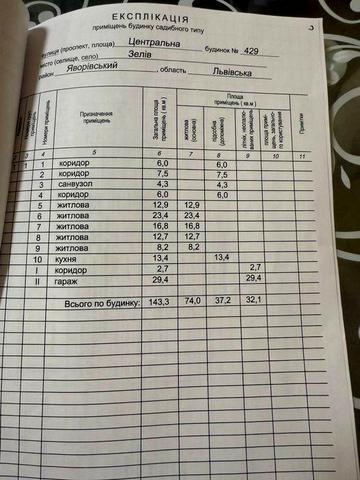 ЕКСПЛІКАЦІЯ
приміщень будинку садибного типу
вулиця (проспект, площа) Центральна будинок № 429
місто (селище, село) Зелів
район Яворівський , область Львівська
Номери приміщень
Призначення приміщень
Загальна площа приміщень ( кв.м )
Площа приміщень ( кв.м )
житлова (основна)
підсобна (допоміжна)
літніх, неопалюваних приміщень
площа приміщень, загального користування
Примітки
3 4 5 6 7 8 9 10 11
1 1 коридор 6,0 6,0
2 коридор 7,5 7,5
3 санвузол 4,3 4,3
4 коридор 6,0 6,0
5 житлова 12,9 12,9
6 житлова 23,4 23,4
7 житлова 16,8 16,8
8 житлова 12,7 12,7
9 житлова 8,2 8,2
10 кухня 13,4 13,4
I коридор 2,7 2,7
II гараж 29,4 29,4
Всього по будинку: 143,3 74,0 37,2 32,1